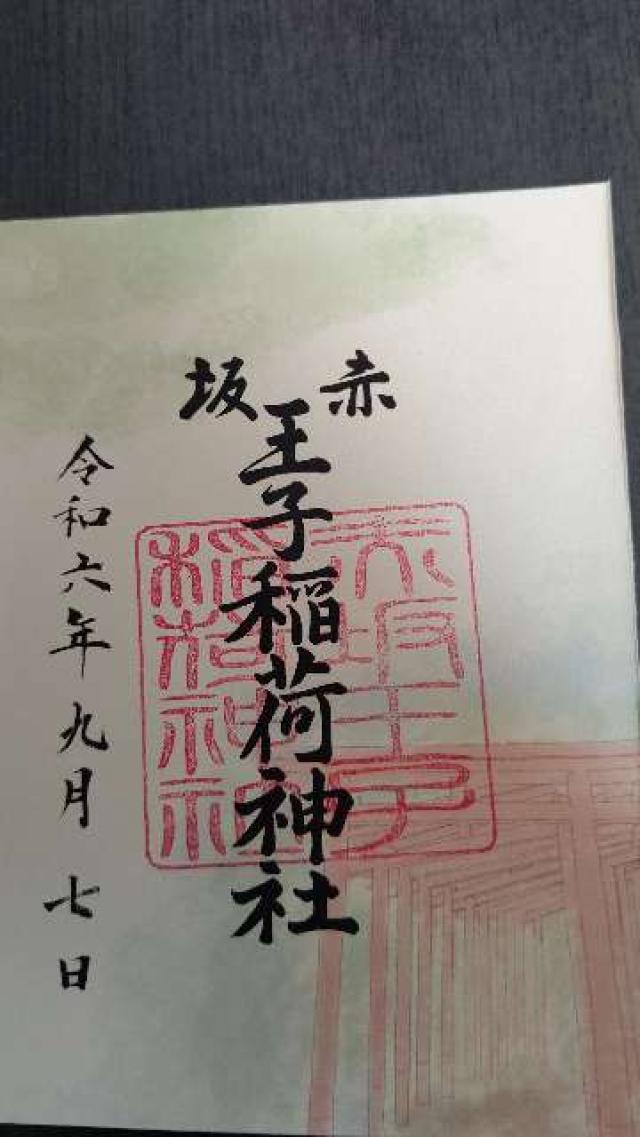 赤坂
王子稲荷神社
令和六年九月七日
赤坂王子
稲荷神社